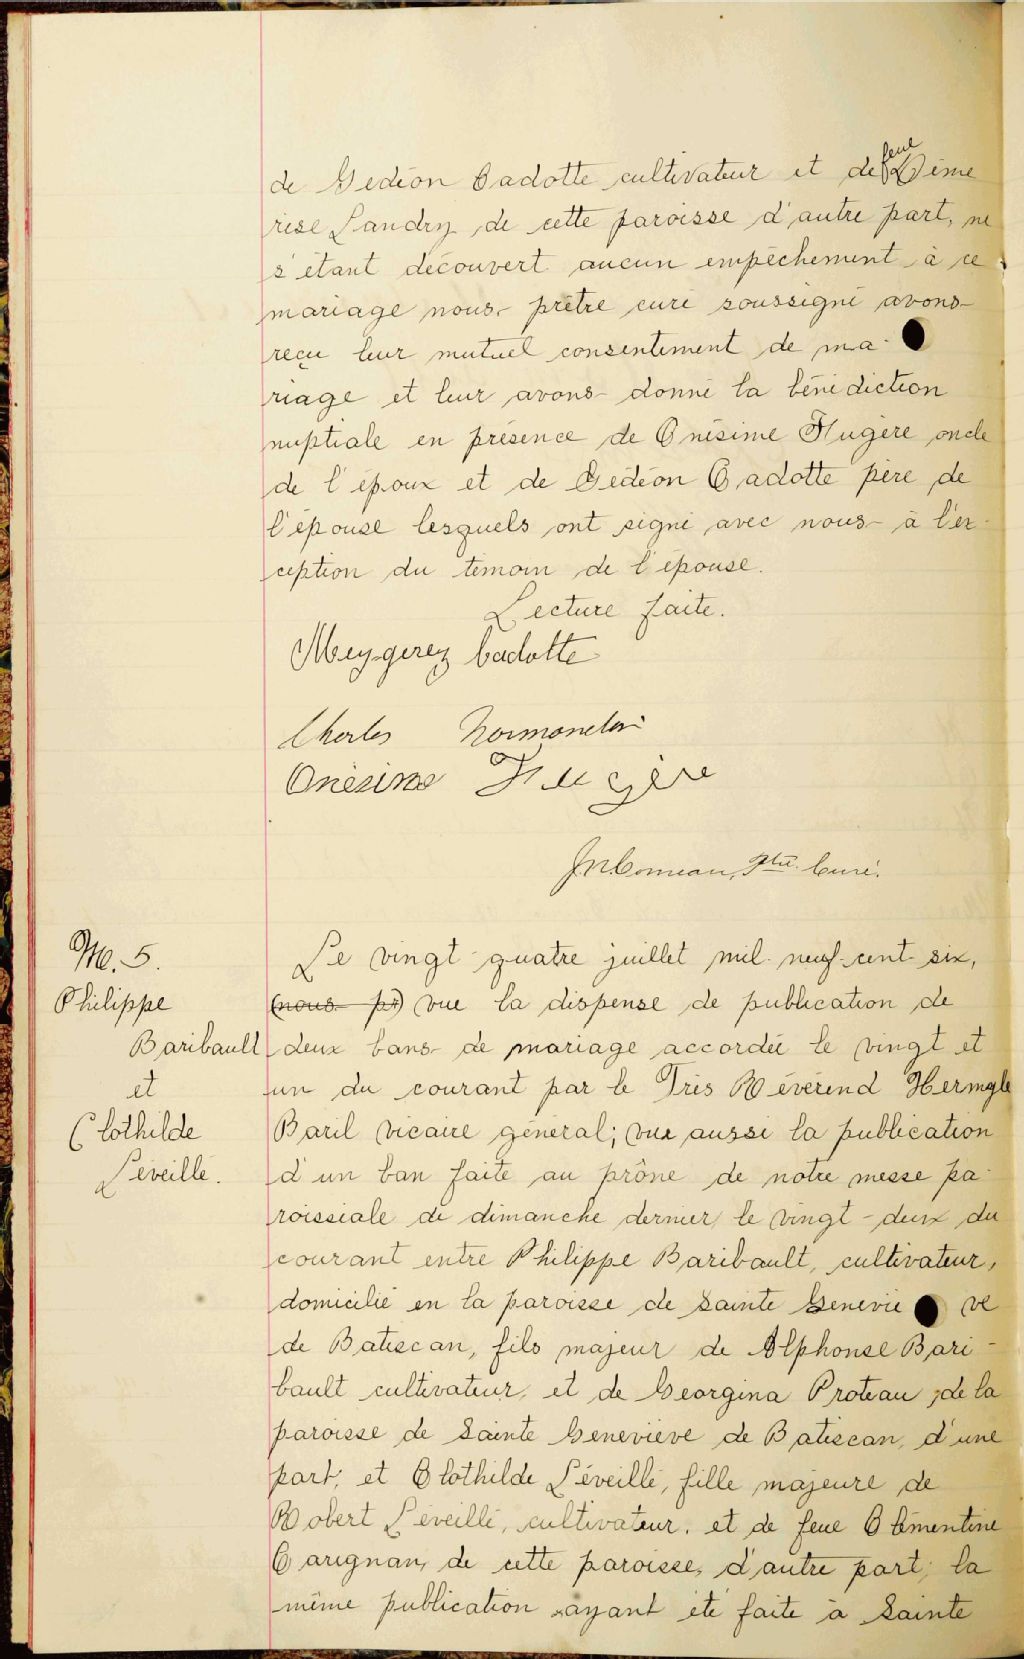 de Gedéon Cadotte cultivateur et de feue Déme
rise Landry de cette paroisse d'autre part, ne
s'étant découvert aucun empêchement à ce
mariage nous prêtre curé soussigné avons
reçu leur mutuel consentement de ma-
riage et leur avons donné la bénédiction
nuptiale en présence de Onésime Fugère oncle
de l'époux et de Gédéon Cadotte père de
l'épouse lesquels ont signé avec nous à l'ex-
ception du témoin de l'épouse.
Lecture faite.
Cadotte
Charles Normandin
Onésime Fugère
Comeau, Ptre. Curé.
M. 5.
Philippe
Baribault
et
Clothilde
Léveillé.
Le vingt-quatre juillet mil-neuf-cent-six,
(nous pr) vue la dispense de publication de
deux bans de mariage accordée le vingt et
un du courant par le Très Révérend Hermyle
Baril vicaire général; vue aussi la publication
d'un ban faite au prône de notre messe pa-
roissiale de dimanche dernier, le vingt-deux du
courant entre Philippe Baribault, cultivateur,
domicilié en la paroisse de Sainte Geneviève
de Batiscan, fils majeur de Alphonse Bari-
bault cultivateur, et de Georgina Proteau, de la
paroisse de Sainte Geneviève de Batiscan, d'une
part, et Clothilde Léveillé, fille majeure de
Robert Léveillé, cultivateur, et de feue Clémentine
Carignan, de cette paroisse, d'autre part; la
même publication ayant été faite à Sainte